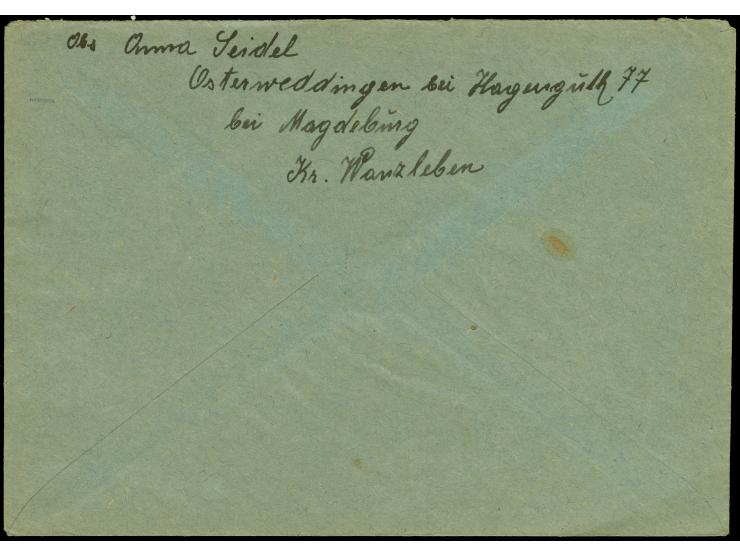 Abs Anna Seidel
Osterweddingen bei Hagenguth 77
bei Magdeburg
Kr. Wanzleben